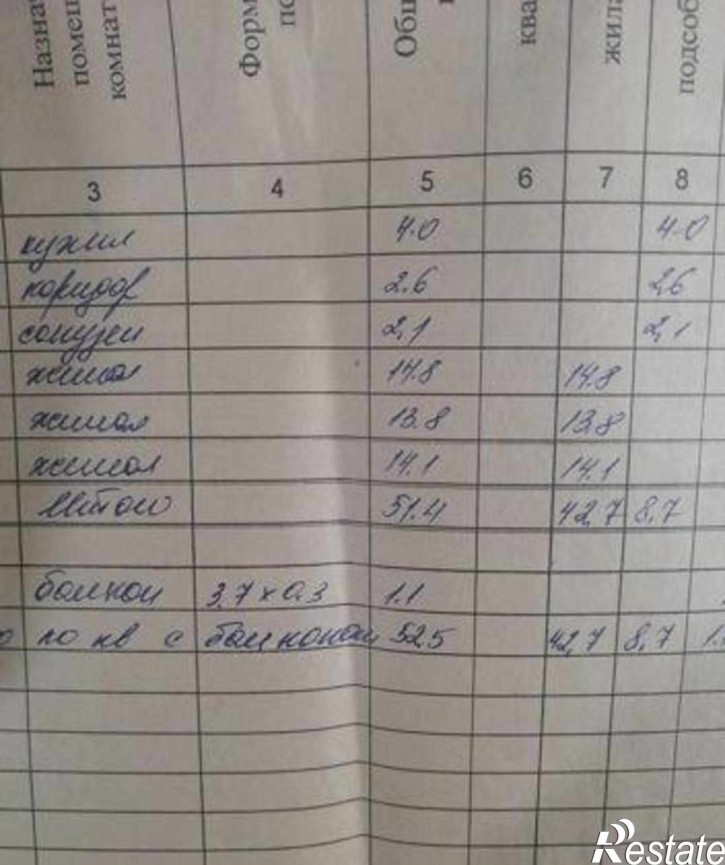 Назнач
помещ
комнат
Форм
по
Общ
ква
жила
подсоб
3 4 5 6 7 8
кухня 4.0 4.0
коридор 2.6 2,6
санузел 2,1 2,1
жилая 14.8 14.8
жилая 13.8 13.8
жилая 14.1 14.1
Итого 51.4 42,7 8,7
балкон 3,7 х 0,3 1.1
по кв с балконом 52,5 42,7 8,7 1.
Restate